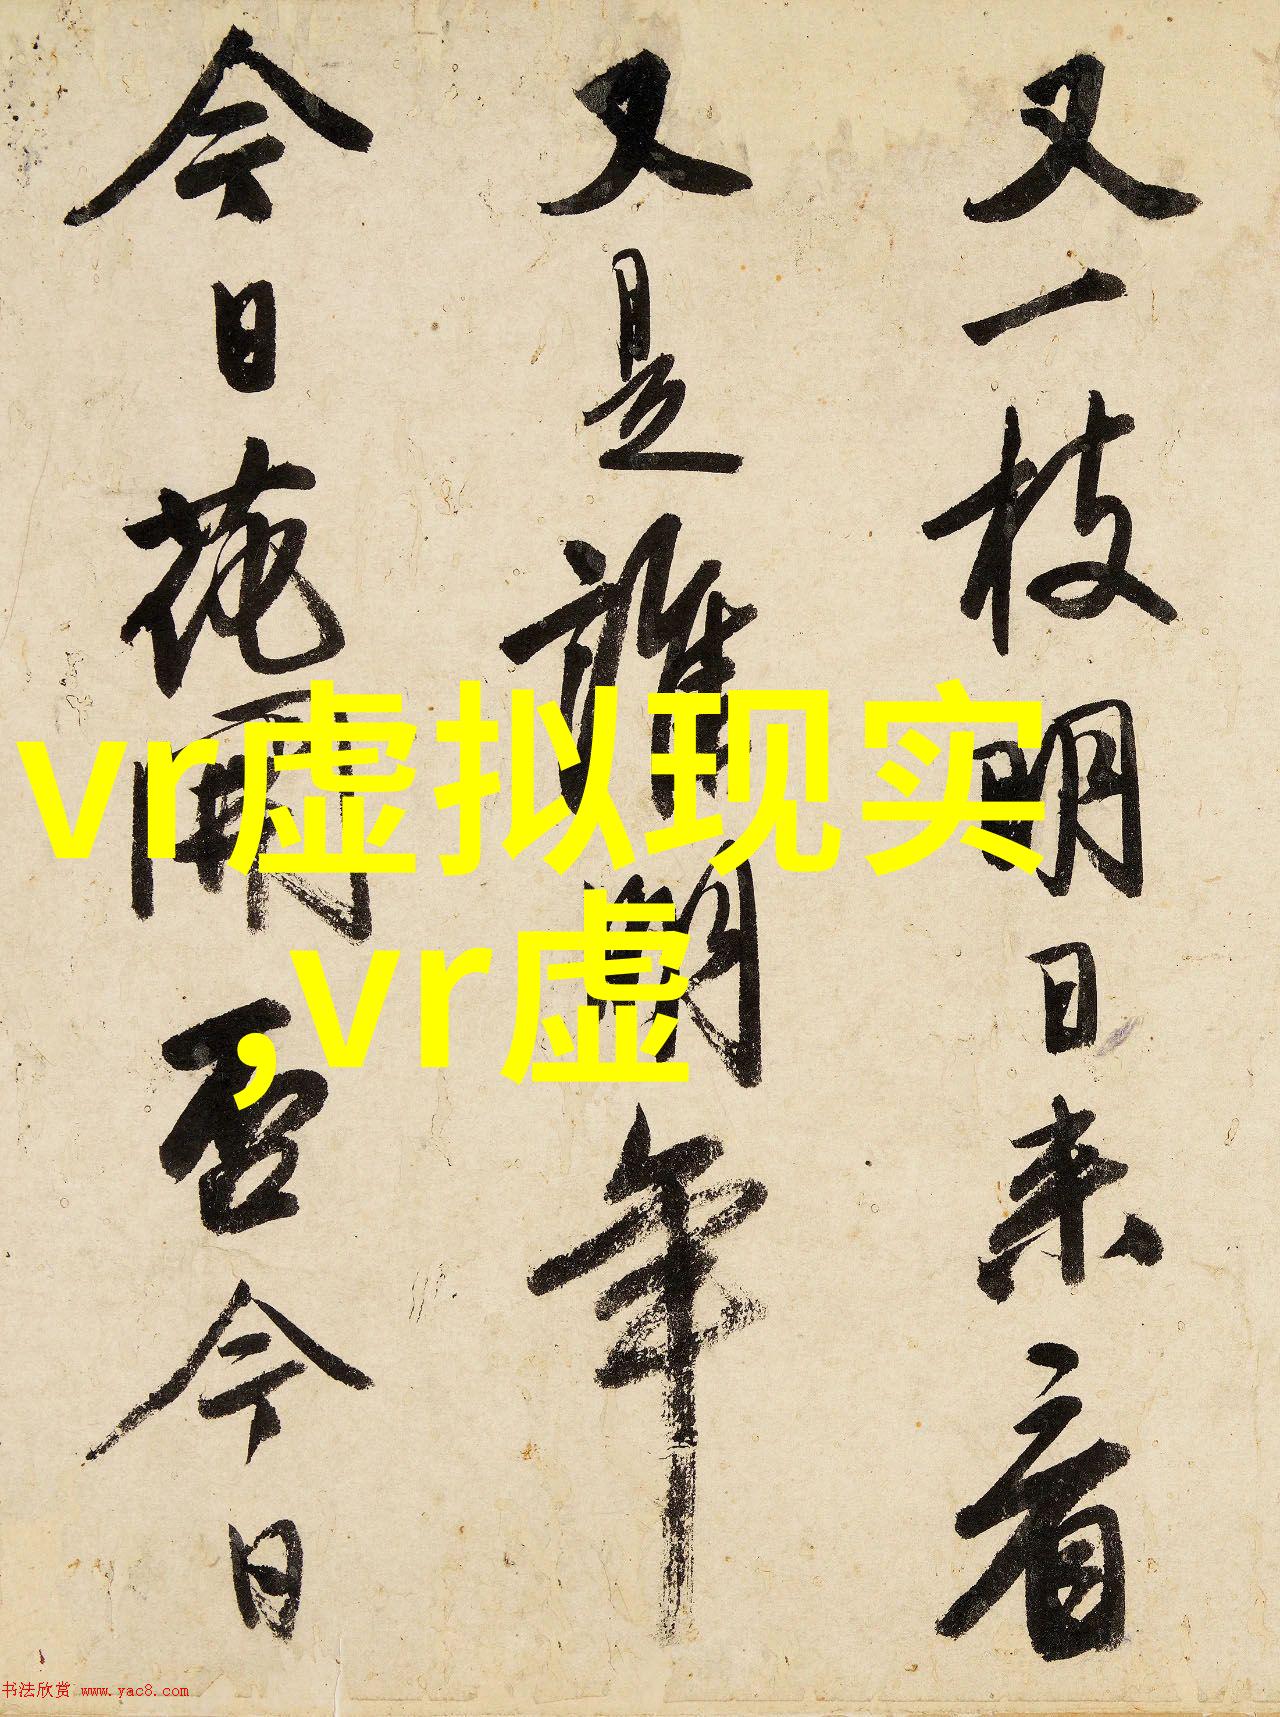 又一枝明日来看
又是誰明年
今日花開否今日
vr虚拟现实
,vr虚
书法欣赏 www.yac8.com